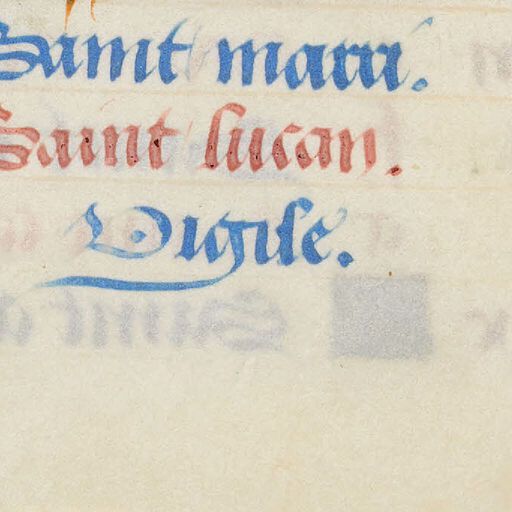 Saint marri.
Saint lucan.
Vigile.